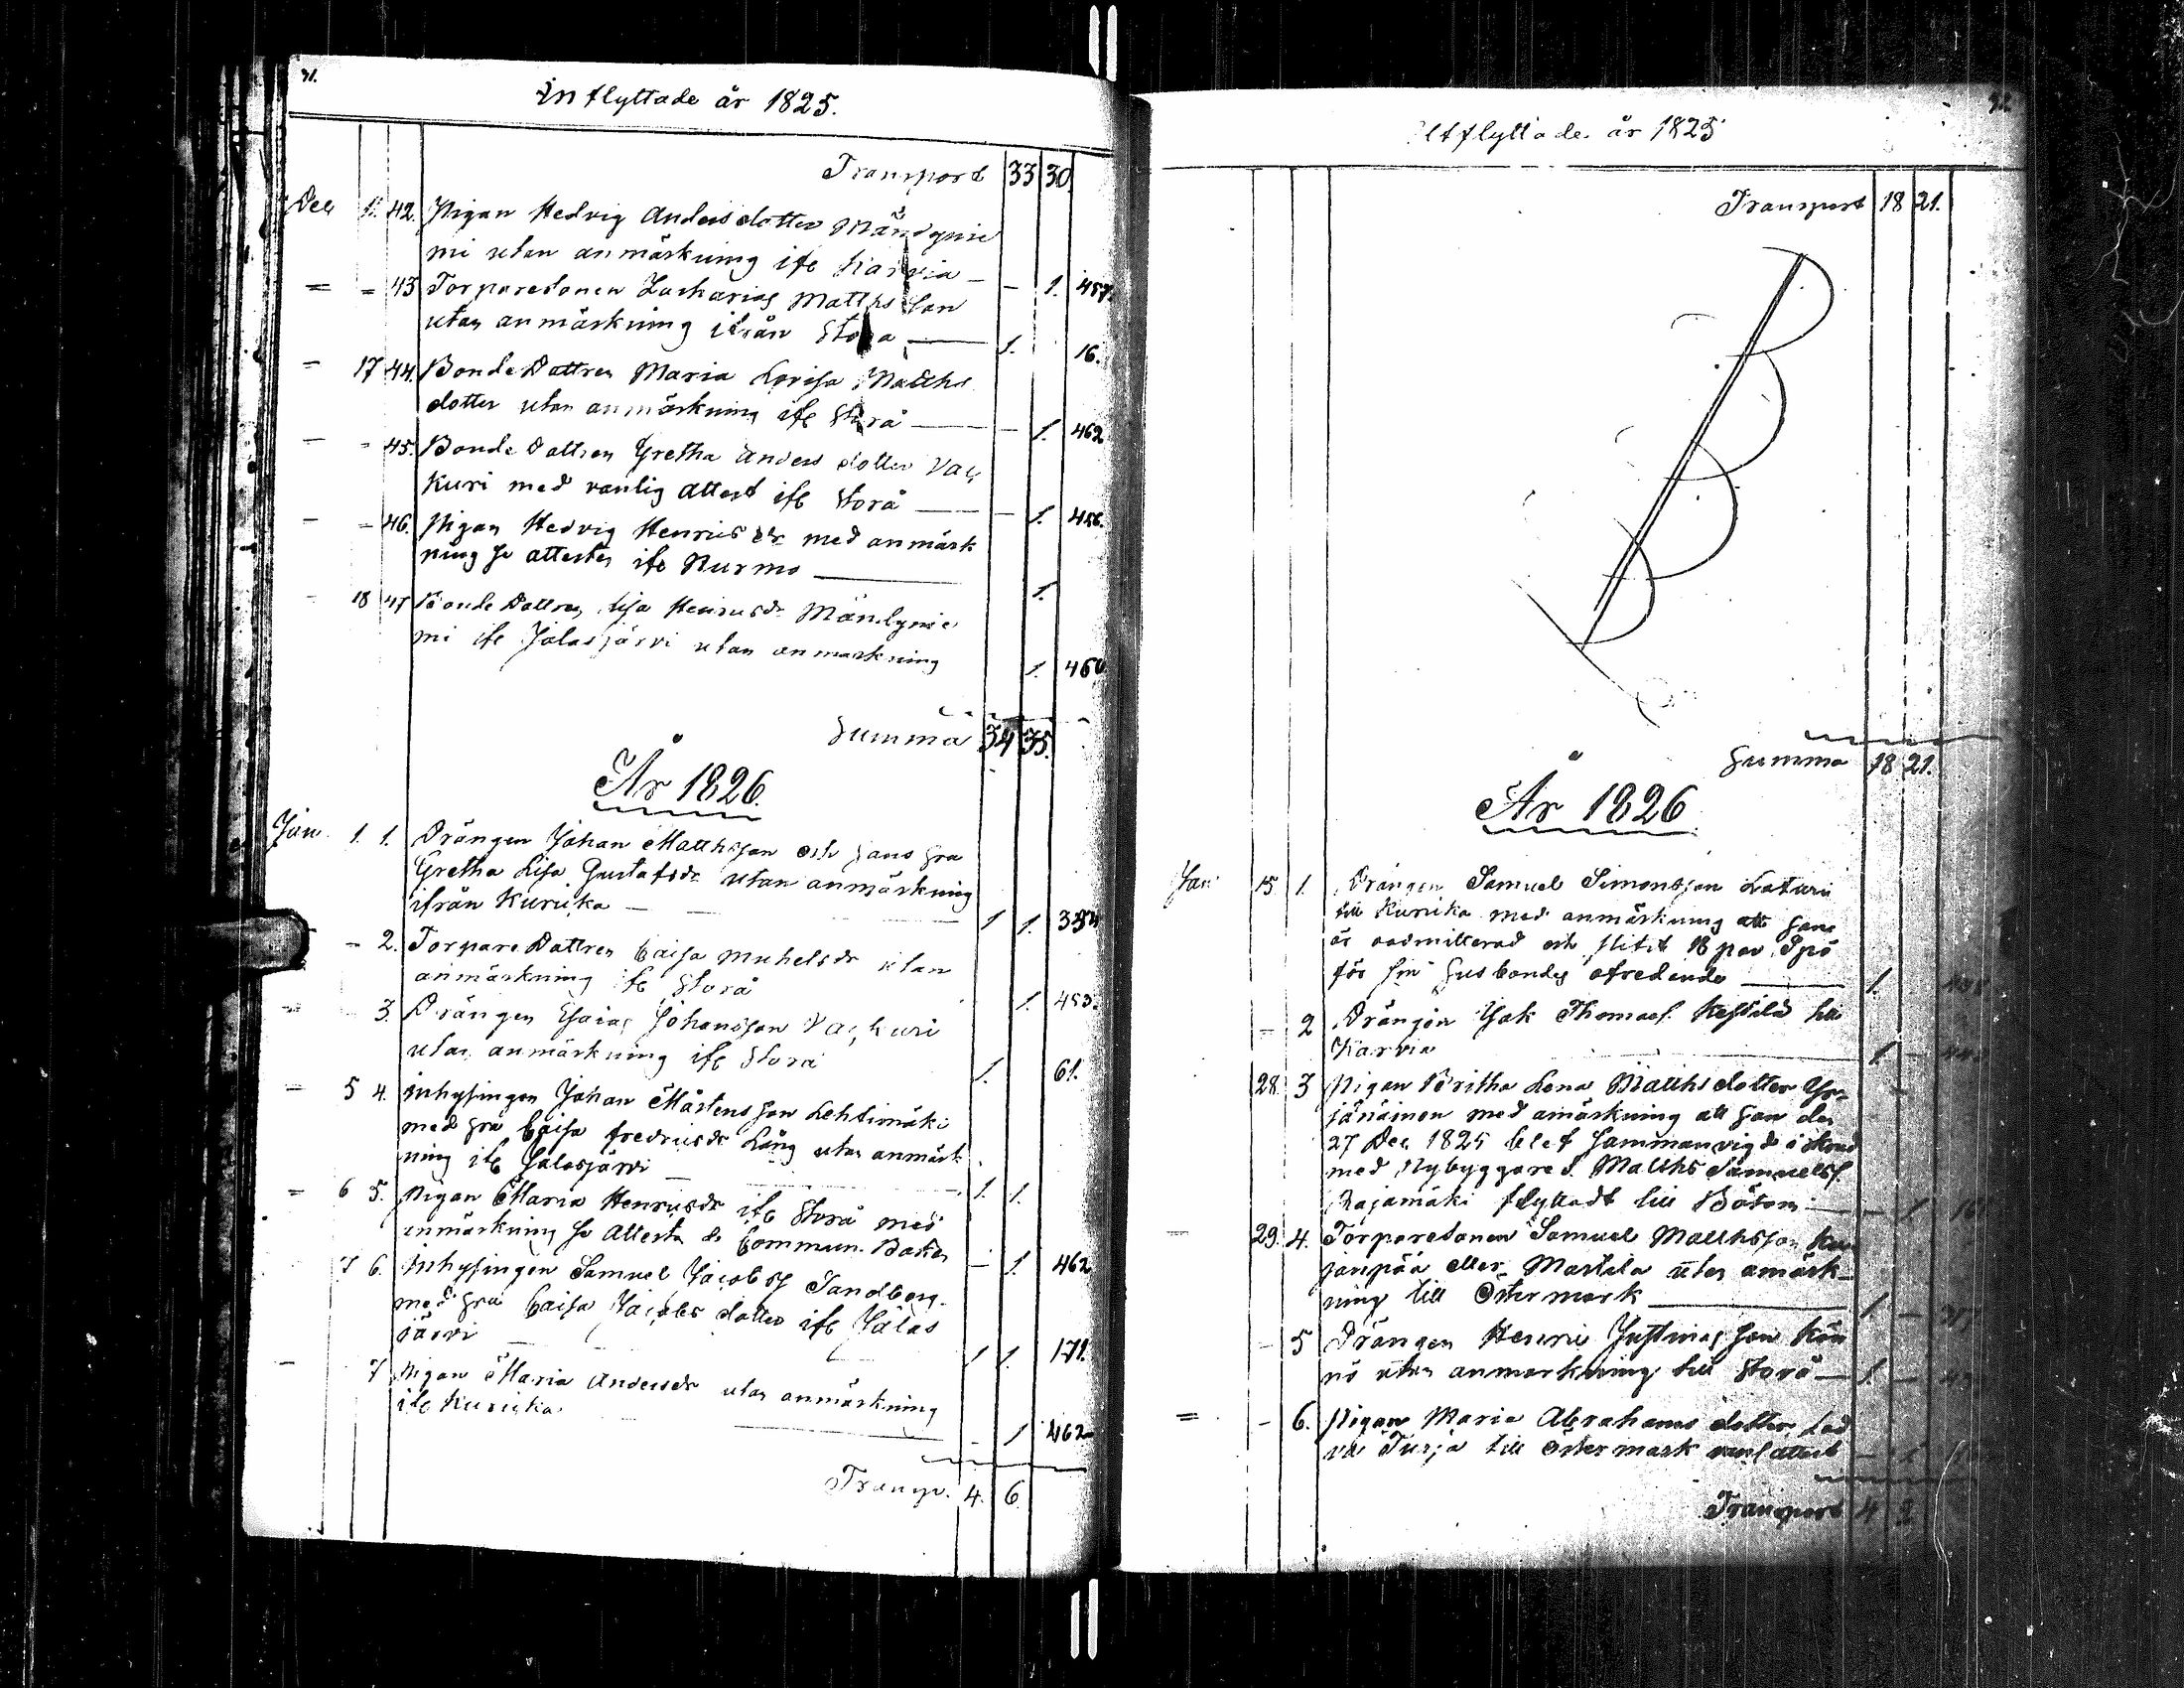 31.
Inflyttade år 1825.
Transport 33 30.
Dec 11. 42. Pigan Hedvig Andersdotter Mändynie
mi utan anmärkning ifr Karvia — — 1. 457.
= = 43 Torparesonen Zacharias Matthsson
utan anmärkning ifrån Storå — 1. 16.
— 17 44. Bonde Dottren Maria Lovisa Matths
dotter utan anmärkning ifr Storå — — 1. 462
— = 45. Bonde Dottren Gretha Anders dotter Vas
kuri med vanlig attest ifr Storå — — 1. 456.
— = 46. Pigan Hedvig Henricsdr med anmärk
ning se attesten ifr Nurmo — 1.
— 18 47 Bonde Dottren Lisa Henricsdr Mändynie
mi ifr Jalasjärvi utan anmärkning 1. 460
Summa 34 35.
År 1826.
Jan. 1. 1. Drängen Johan Matthsson och hans hru
Gretha Lisa Gustafsdr utan anmärkning
ifrån Kurikka — 1 1.
— = 2. Torpare Dottren Caisa Michelsdr utan
anmärkning ifr Storå 1. 453.
— 3. Drängen Esaias Johansson Vaskuri
utan anmärkning ifr Storå 1. 61.
— 5 4. Inhysingen Johan Mårtensson Lehtimäki
med hru Caisa Fredricsdr Lång utan anmärk
ning ifr Jalasjärvi — 1. 1.
— 6 5. Pigan Maria Henricsdr ifr Storå med
anmärkning se Attesten & Commun. Boken — 1. 462
7 6. Inhysingen Samuel Jacobss Sandberg
med hru Caisa Jacobs dotter ifr Jalas
järvi — 1 1. 171.
— 7 Pigan Maria Andersdr utan anmärkning
ifr Kurikka — 1 462
Transp. 4. 6.
32
Utflyttade år 1825
Transport 18 21.
Summa 18 21.
År 1826
Jan 15 1. Drängen Samuel Simonsson Laturi
till Kurikka med anmärkning att han
är och slitit 18 par Spö
för sin husbondes — 1.
— 2 Drängen Isak Thomass. till
Karvia — 1 —
28. 3 Pigan Britha Lena Matths dotter Yr-
jänäinen med anmärkning att hon den
27 Dec 1825 blef sammanvigd i
med Nybyggare s. Matths Samuelss.
Rajamäki flyttadt till Bötom — 1.
— 29. 4. Torparesonen Samuel Matthsson
janpää eller Martila utan anmärk-
ning till Östermark — 1 —
— 5 Drängen Henric Justinas son Kön
nö utan anmärkning till Storå — 1. —
= — 6. Pigan Maria Abrahams dotter
till Östermark attest — 1
Transport 4 2